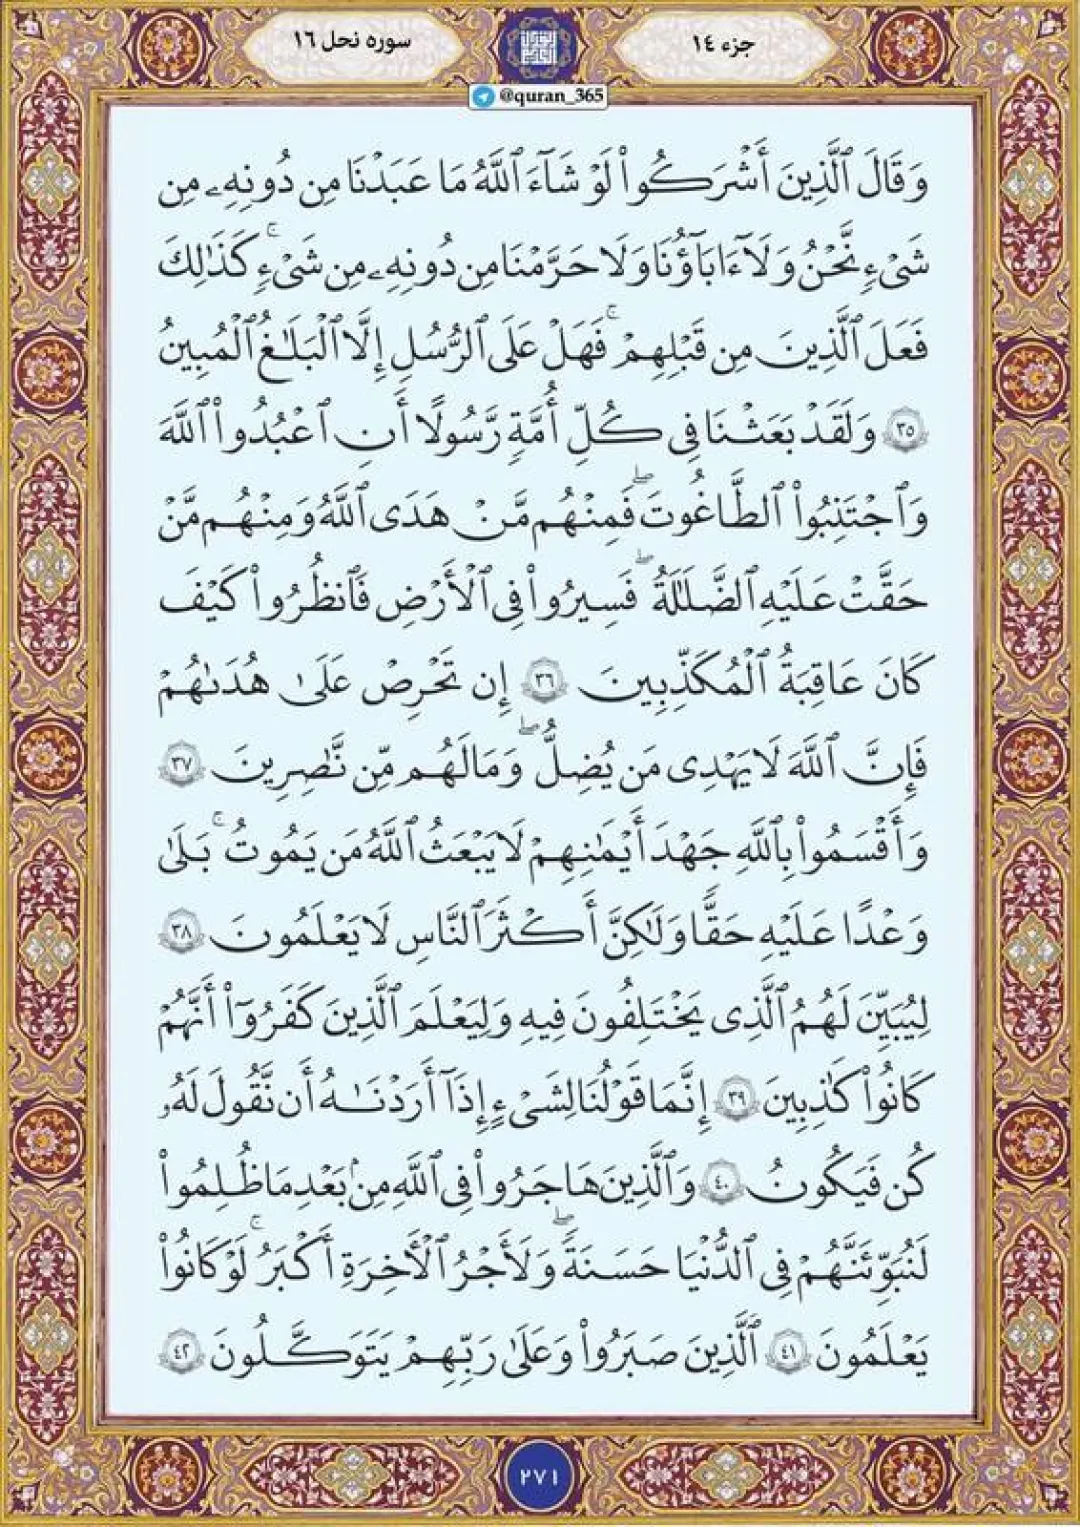 جزء ١٤
سوره نحل ١٦
@quran_365
وَقَالَ ٱلَّذِينَ أَشْرَكُوا۟ لَوْ شَآءَ ٱللَّهُ مَا عَبَدْنَا مِن دُونِهِۦ مِن
شَىْءٍ نَّحْنُ وَلَآ ءَابَآؤُنَا وَلَا حَرَّمْنَا مِن دُونِهِۦ مِن شَىْءٍ ۚ كَذَٰلِكَ
فَعَلَ ٱلَّذِينَ مِن قَبْلِهِمْ ۚ فَهَلْ عَلَى ٱلرُّسُلِ إِلَّا ٱلْبَلَٰغُ ٱلْمُبِينُ
٣٥ وَلَقَدْ بَعَثْنَا فِى كُلِّ أُمَّةٍ رَّسُولًا أَنِ ٱعْبُدُوا۟ ٱللَّهَ
وَٱجْتَنِبُوا۟ ٱلطَّٰغُوتَ ۖ فَمِنْهُم مَّنْ هَدَى ٱللَّهُ وَمِنْهُم مَّنْ
حَقَّتْ عَلَيْهِ ٱلضَّلَٰلَةُ ۖ فَسِيرُوا۟ فِى ٱلْأَرْضِ فَٱنظُرُوا۟ كَيْفَ
كَانَ عَاقِبَةُ ٱلْمُكَذِّبِينَ ٣٦ إِن تَحْرِصْ عَلَىٰ هُدَىٰهُمْ
فَإِنَّ ٱللَّهَ لَا يَهْدِى مَن يُضِلُّ ۖ وَمَا لَهُم مِّن نَّٰصِرِينَ ٣٧
وَأَقْسَمُوا۟ بِٱللَّهِ جَهْدَ أَيْمَٰنِهِمْ لَا يَبْعَثُ ٱللَّهُ مَن يَمُوتُ ۚ بَلَىٰ
وَعْدًا عَلَيْهِ حَقًّا وَلَٰكِنَّ أَكْثَرَ ٱلنَّاسِ لَا يَعْلَمُونَ ٣٨
لِيُبَيِّنَ لَهُمُ ٱلَّذِى يَخْتَلِفُونَ فِيهِ وَلِيَعْلَمَ ٱلَّذِينَ كَفَرُوٓا۟ أَنَّهُمْ
كَانُوا۟ كَٰذِبِينَ ٣٩ إِنَّمَا قَوْلُنَا لِشَىْءٍ إِذَآ أَرَدْنَٰهُ أَن نَّقُولَ لَهُۥ
كُن فَيَكُونُ ٤٠ وَٱلَّذِينَ هَاجَرُوا۟ فِى ٱللَّهِ مِنۢ بَعْدِ مَا ظُلِمُوا۟
لَنُبَوِّئَنَّهُمْ فِى ٱلدُّنْيَا حَسَنَةً ۖ وَلَأَجْرُ ٱلْءَاخِرَةِ أَكْبَرُ ۚ لَوْ كَانُوا۟
يَعْلَمُونَ ٤١ ٱلَّذِينَ صَبَرُوا۟ وَعَلَىٰ رَبِّهِمْ يَتَوَكَّلُونَ ٤٢
٢٧١